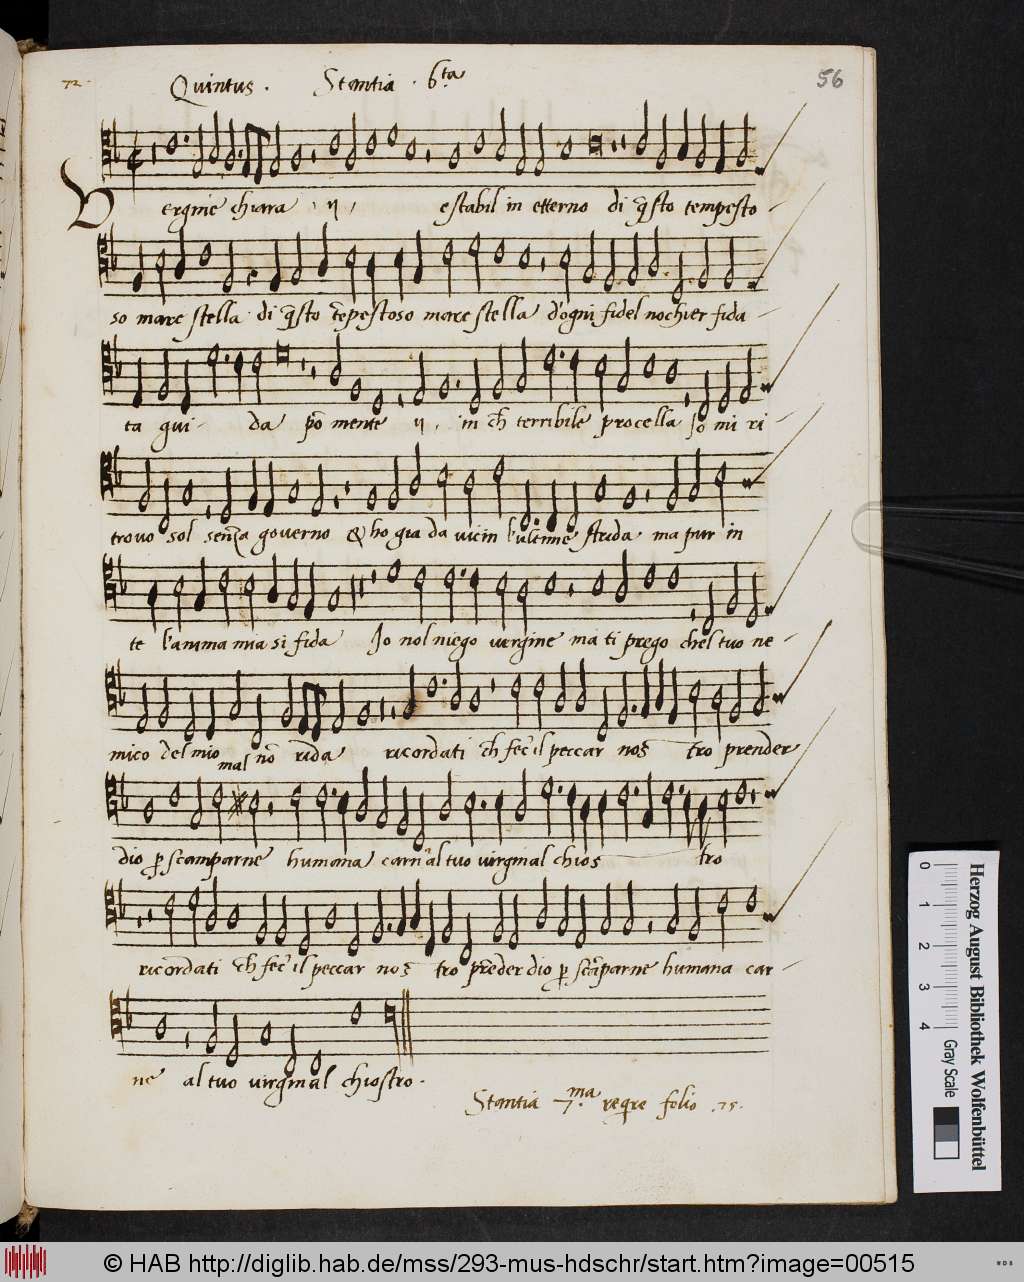 72.
Quintus. Stantia. 6ta
56
Vergine chiara . ij . estabil in etterno di q̃sto tempesto
so mare stella di q̃sto tẽpestoso mare stella d'ogni fidel nochier fida
ta gui da põ mente ij . in ch̃ terribile procella so mi ri
trovo sol senza governo & ho gia da vicin l'ultime strida ma pur in
te l'anma mia si fida Io nol niego vergine ma ti prego chel tuo ne
mico del mio mal nõ rida ricordati ch̃ fec'il peccar nos tro prender
dio p scamparne humana carn'al tuo virginal chios tro
ricordati ch̃ fec'il peccar nos tro prẽder dio p scãparne humana car
ne al tuo virginal chiostro.
Stantia 7.ma reqre folio .75.
0 1 2 3 4 Gray Scale
Herzog August Bibliothek Wolfenbüttel
© HAB http://diglib.hab.de/mss/293-mus-hdschr/start.htm?image=00515